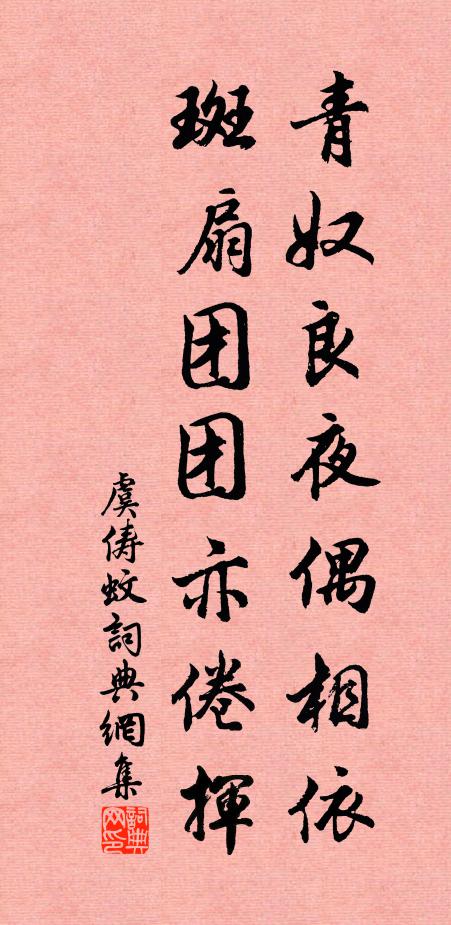 青奴良夜偶相依
斑扇团团亦倦揮
虞俦蚊詞典網集
詞典网印